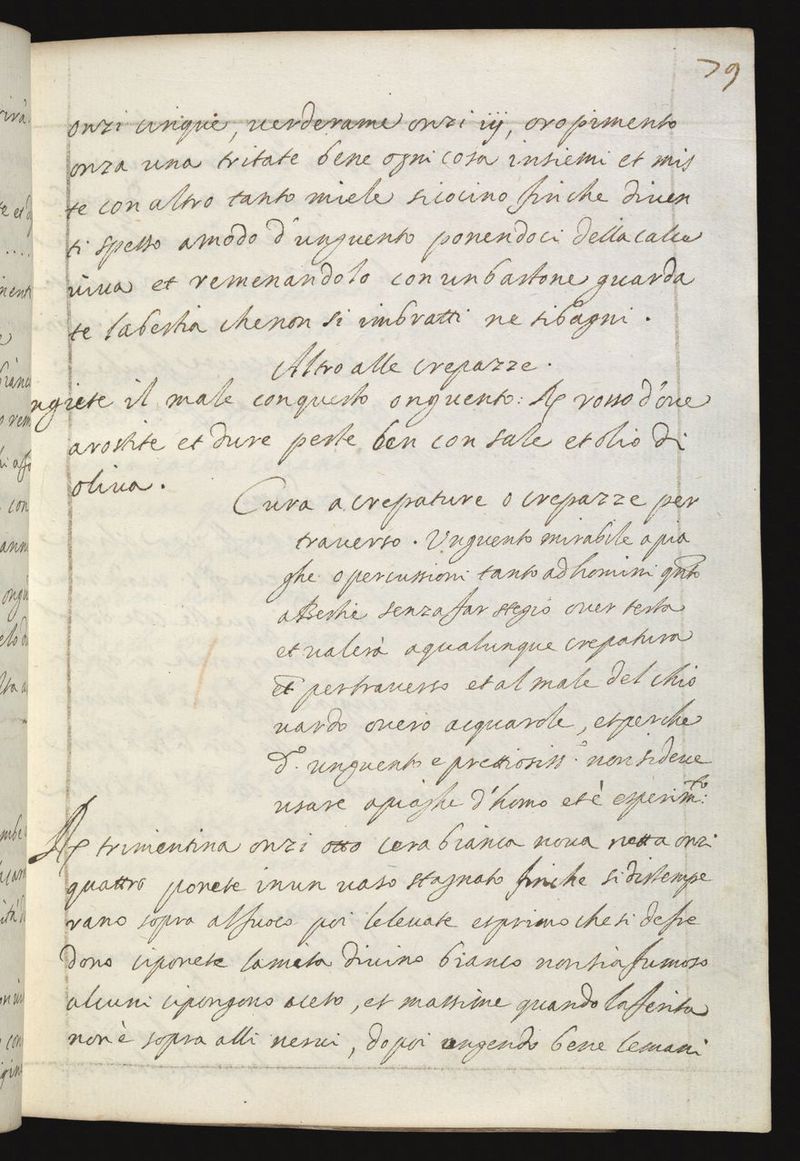 79
onzi cinque, verderame onzi iij, oropimento
onza una tritate bene ogni cosa insiemi et mis
te con altro tanto miele si cocino finche diven
ti spesso a modo d'unguento ponendoci della calce
viva et remenandolo con un bastone guarda
te la bestia che non si imbratti ne si bagni.
Altro alle crepazze.
ngiete il male con questo onguento: ℞ rosso d'ove
arostite et dure peste ben con sale et olio di
oliva.
Cura a crepature o crepazze per
traverso. Unguento mirabile a pia
ghe o percussioni tanto ad homini qnto
a Bestie senza far stegio over testa
et valerà a qualunque crepatura
et per traverso et al male del chio
vardo overo acquarole, et perche
do. unguento e pretiosiss.o non si deve
usare a piaghe d'homo et è esperim.to:
℞ trimentina onzi otto cera bianca nova netta onzi
quattro ponete in un vaso stagnato finche si distempe
rano sopra al fuoco poi le levate et primo che si defre
dono ci ponete la mita di vino bianco non sia fumoso
alcuni ci pongono aceto, et massime quando la ferita
non è sopra alli nervi, dopoi ungendo bene le mani